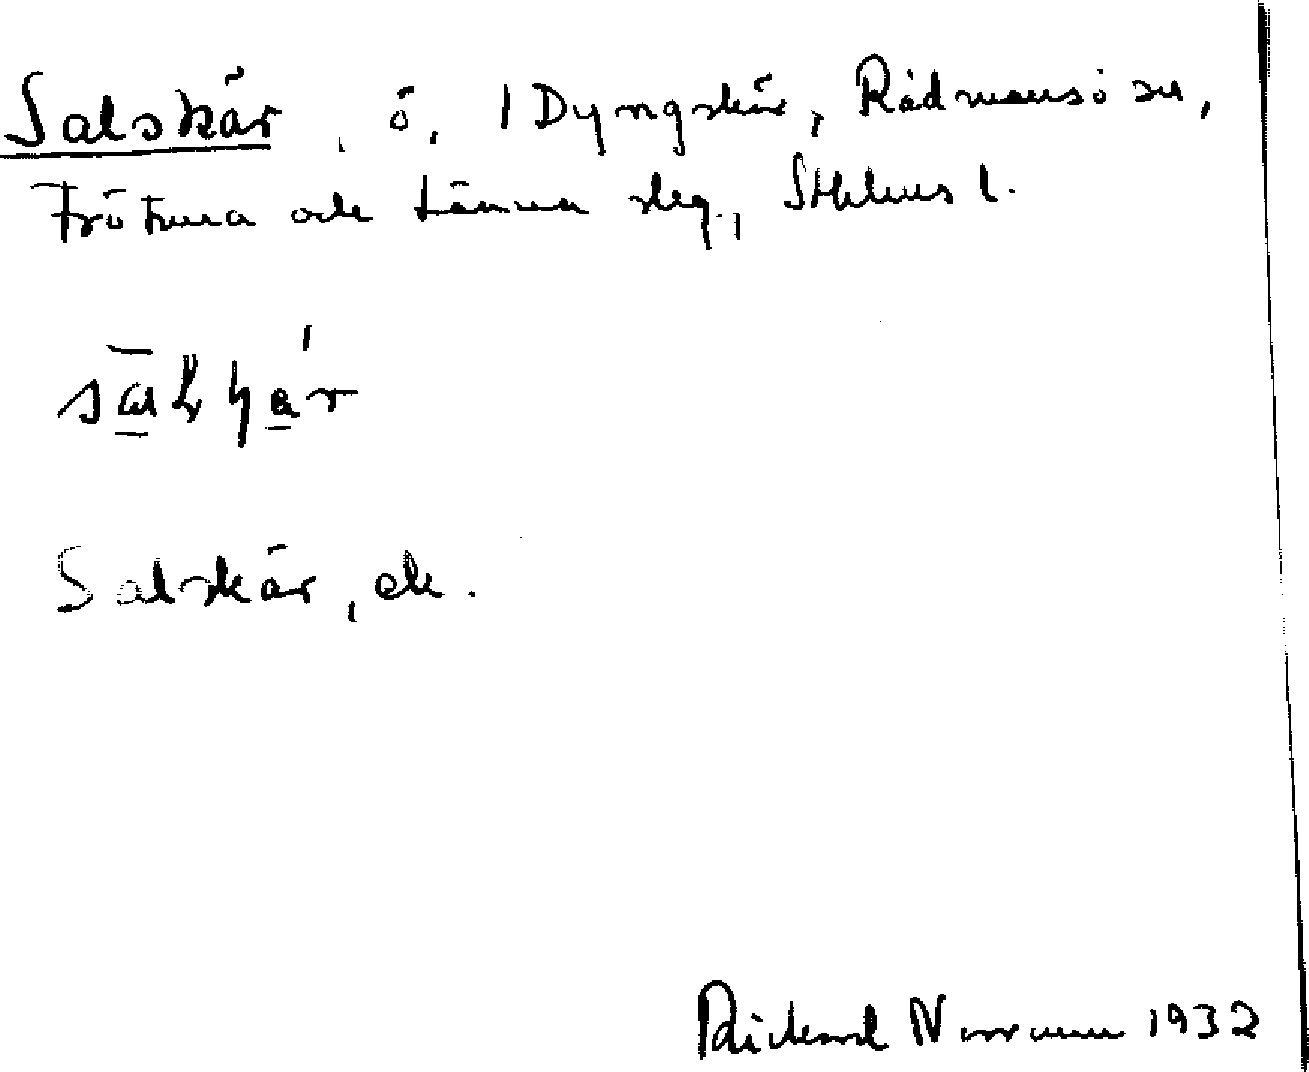 Salskär, ö, 1 Dyngskär, Rådmansö sn,
Frötuna och Länna slg., Sthlms l.
Salskär, ek.
Rickard Norrman 1932